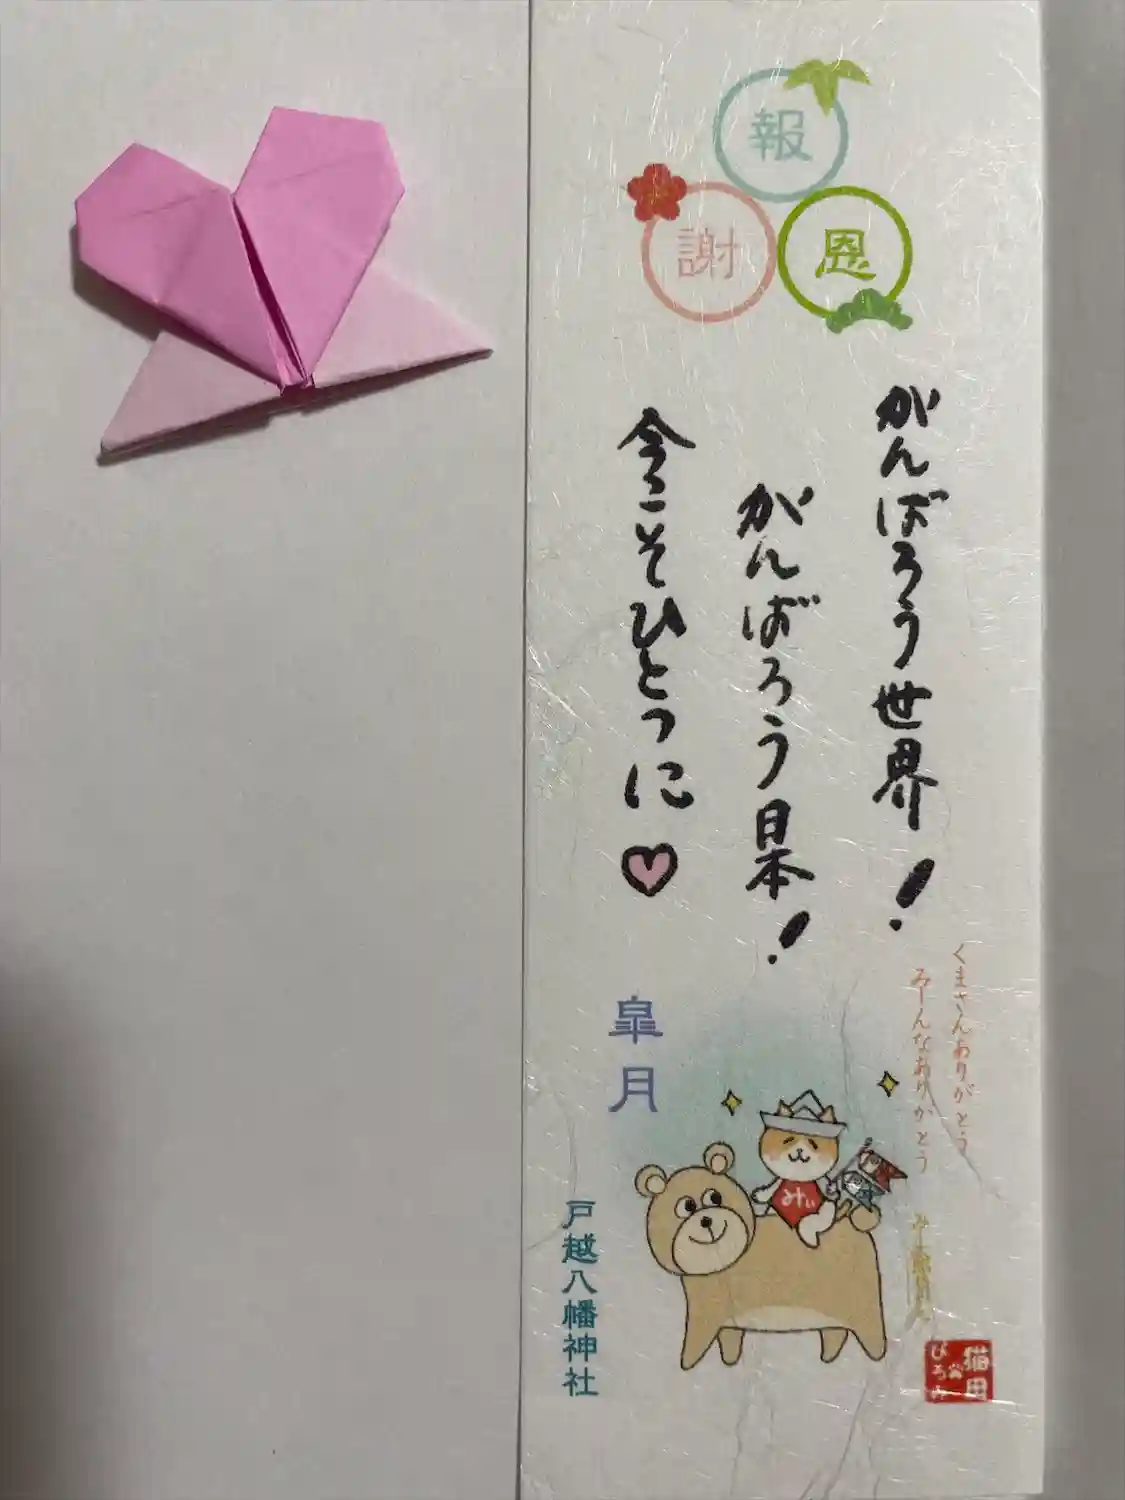 報
恩
謝
がんばろう世界!
がんばろう日本!
今こそひとつに
くまさんありがとう
みーんなありがとう
皐月
みぃ
戸越八幡神社
猫田
ひろみ